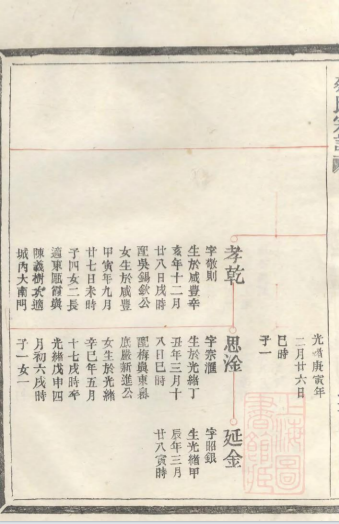 光緒庚寅年
二月廿六日
巳時
子一
孝乾
字敬則
生於咸豐辛
亥年十二月
廿八日戌時
配吳錫歛公
女生於咸豐
甲寅年九月
廿七日未時
子四女二長
適東甌霞廣
陳義樹次適
城內大南門
思淦
字崇滙
生於光緒丁
丑年三月十
八日巳時
配梅廣東縣
底嚴新進公
女生於光緒
辛巳年五月
十七戌時卒
光緒戊申四
月初六戌時
子一女一
延金
字昭銀
生光緒甲
辰年三月
廿八寅時
上海圖
書館藏